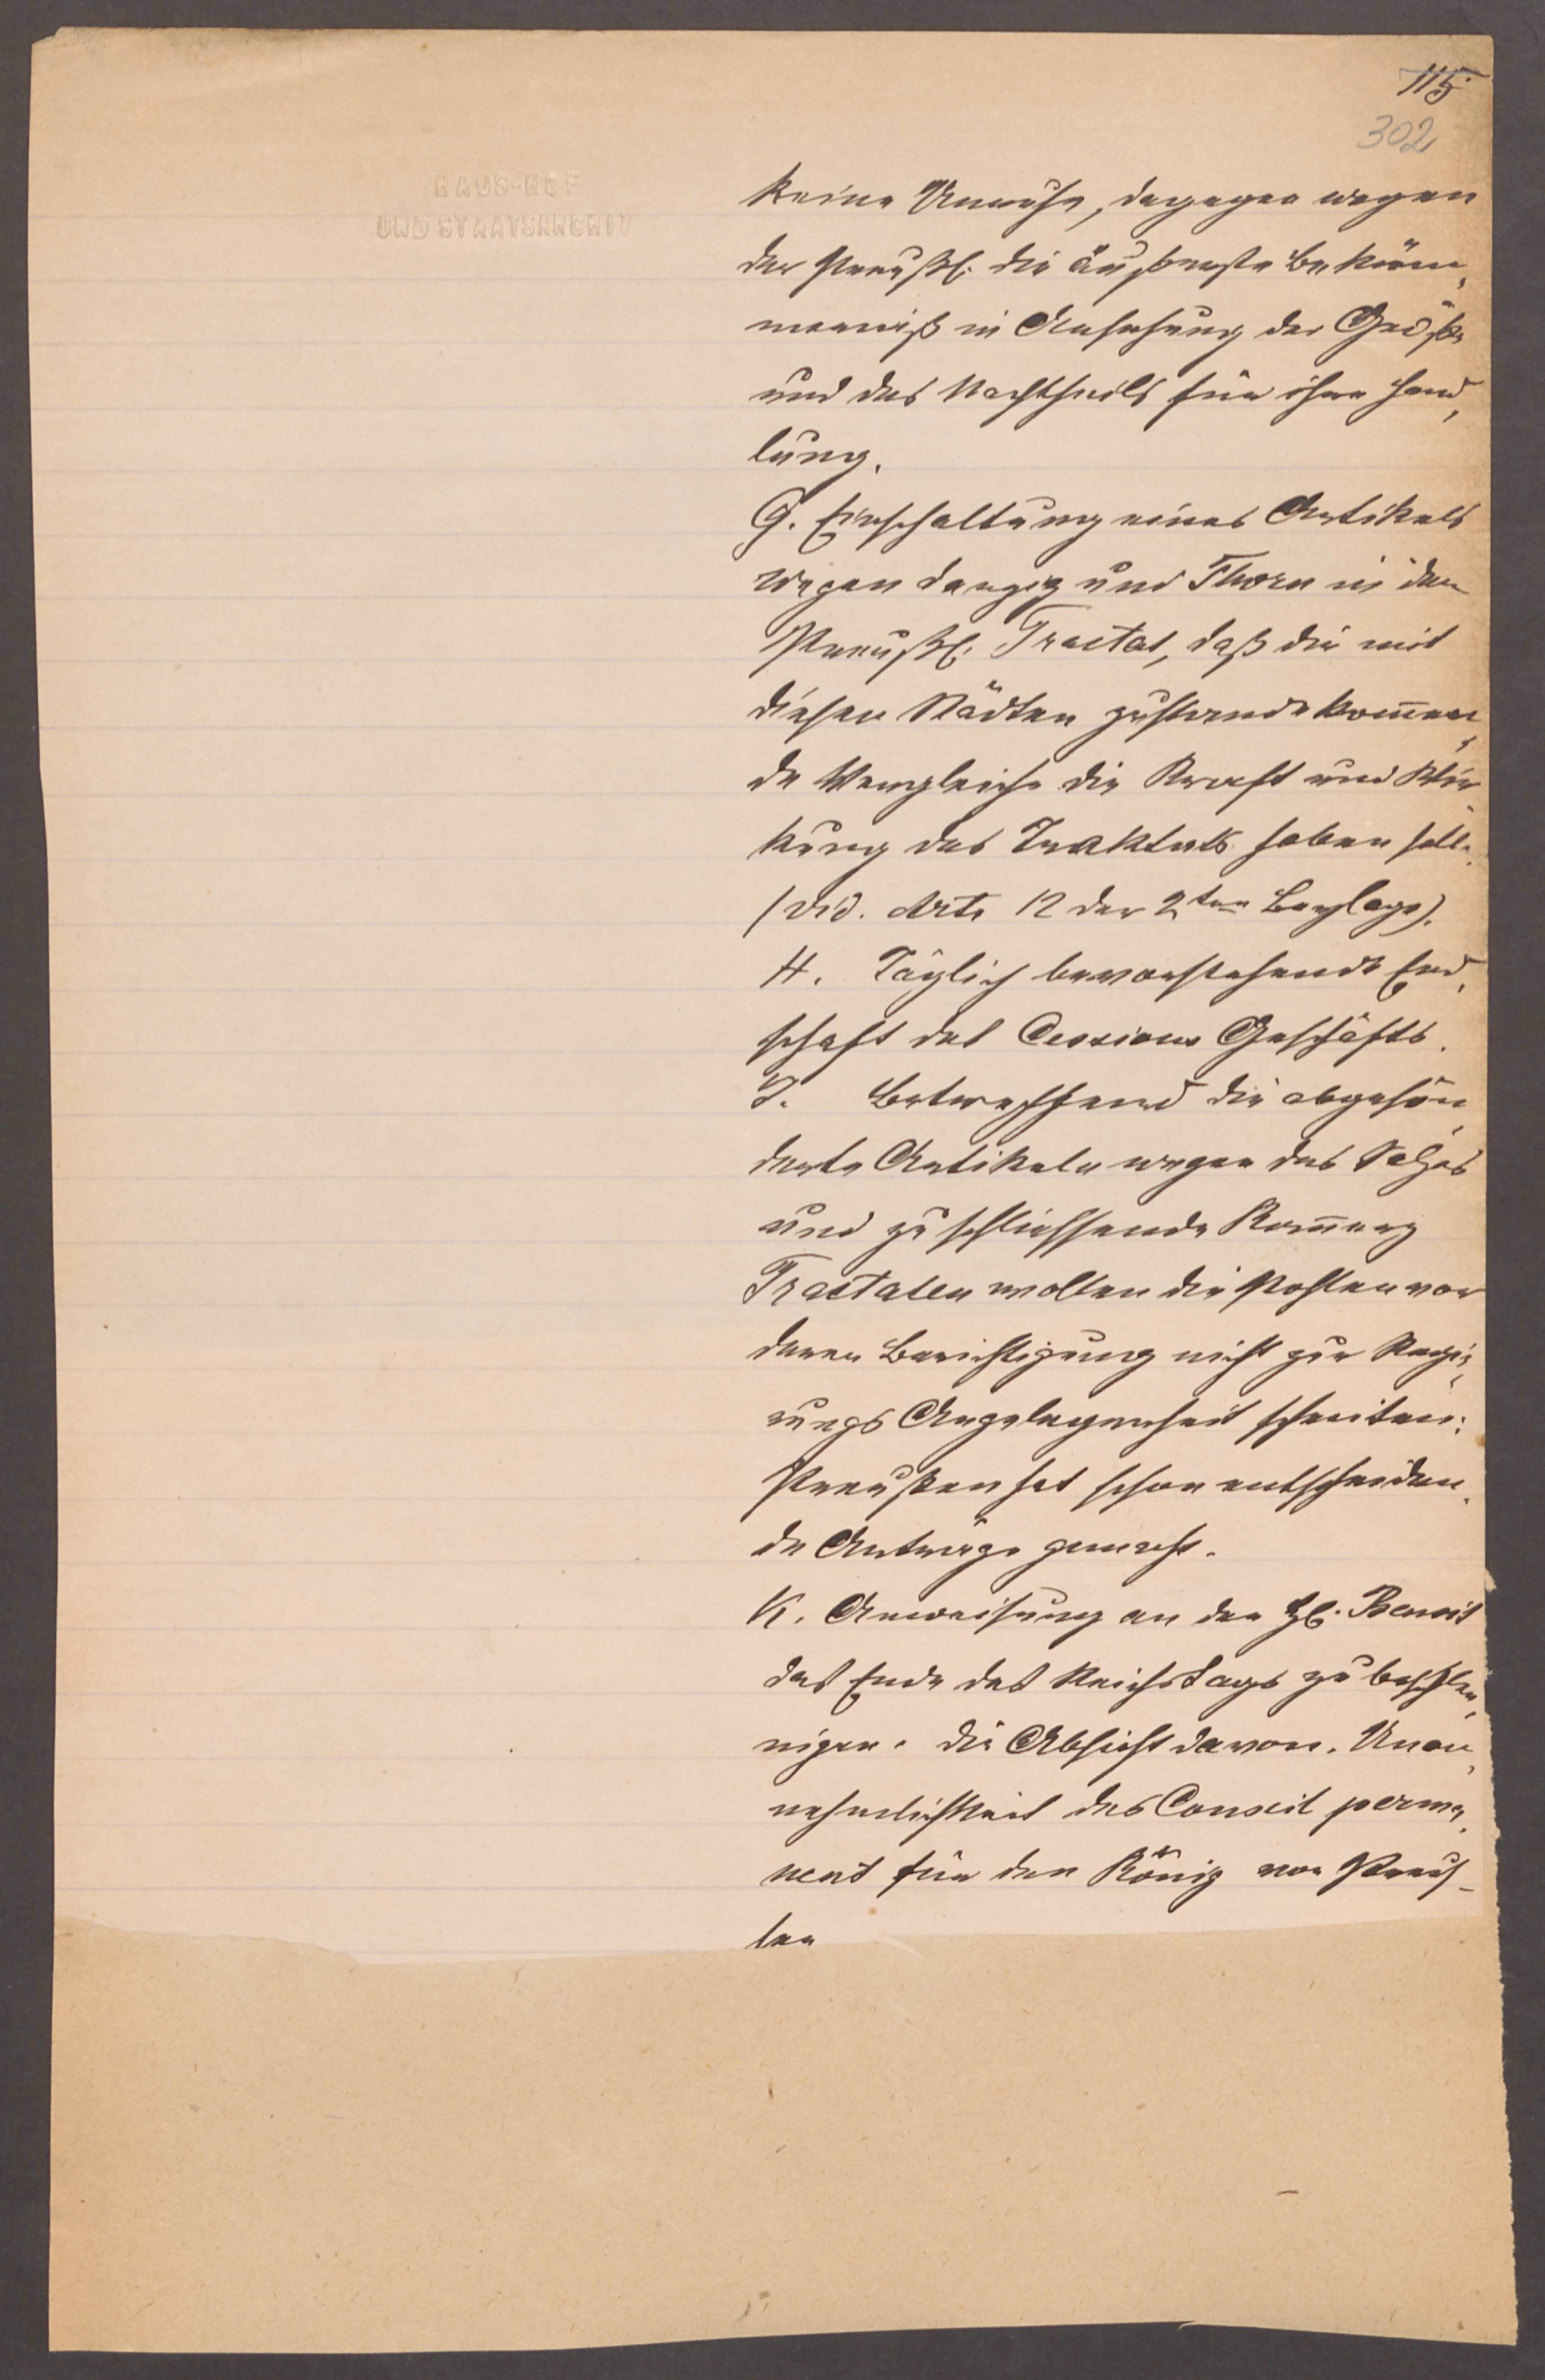 115
302
HAUS-HOF
UND STAATSARCHIV
keine Unruhe, dagegen wegen
der Preußl. die äußerste Beküm„
merniß in Ansehung der Größe
und des Nachtheils für ihre Hand„
lung.
G. Einschaltung eines Artikels
wegen Danzig und Thorn in den
Preußl. Tractat, daß die mit
diesen Städten zustande kom̄en„
de Vergleiche die Kraft und Wir„
kung des Traktats haben soll.
(vid. Art. 12 der 2ten Beylage).
H. Täglich bevorstehende End„
schaft des Cessions Geschäfts.
J. Betreffend die abgesön„
derte Artikeln wegen des Salzes
und zu schliessende Kom̄erz
Tractaten wollen die Pohlen vor
deren Berichtigung nicht zur Regie„
rungs Angelegenheit schreiten:
Preußen hat schon entscheiden„
de Anträge gemacht.
K. Anweisung an den H. Benoit
das Ende des Reichstags zu beschleu„
nigen. Die Absicht davon. Unan„
nehmlichkeit des Conseil perma„
nent für den König von Preus-
sen